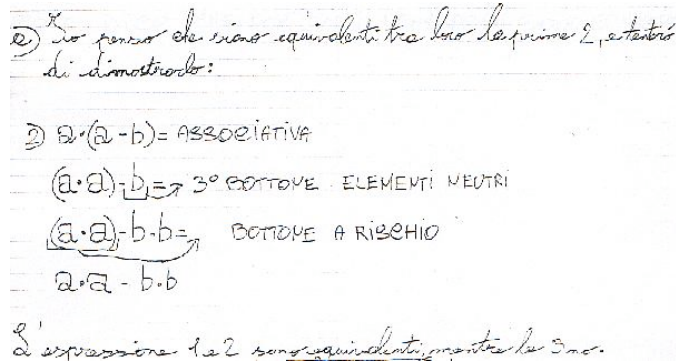 a) Io penso che siano equivalenti tra loro le prime 2, e tenterò
di dimostrarlo:
2) a·(a-b)= ASSOCIATIVA
(a·a)-b= 3° BOTTONE ELEMENTI NEUTRI
(a·a)-b·b= BOTTONE A RISCHIO
a·a - b·b
L'espressione 1 e 2 sono equivalenti, mentre la 3 no.